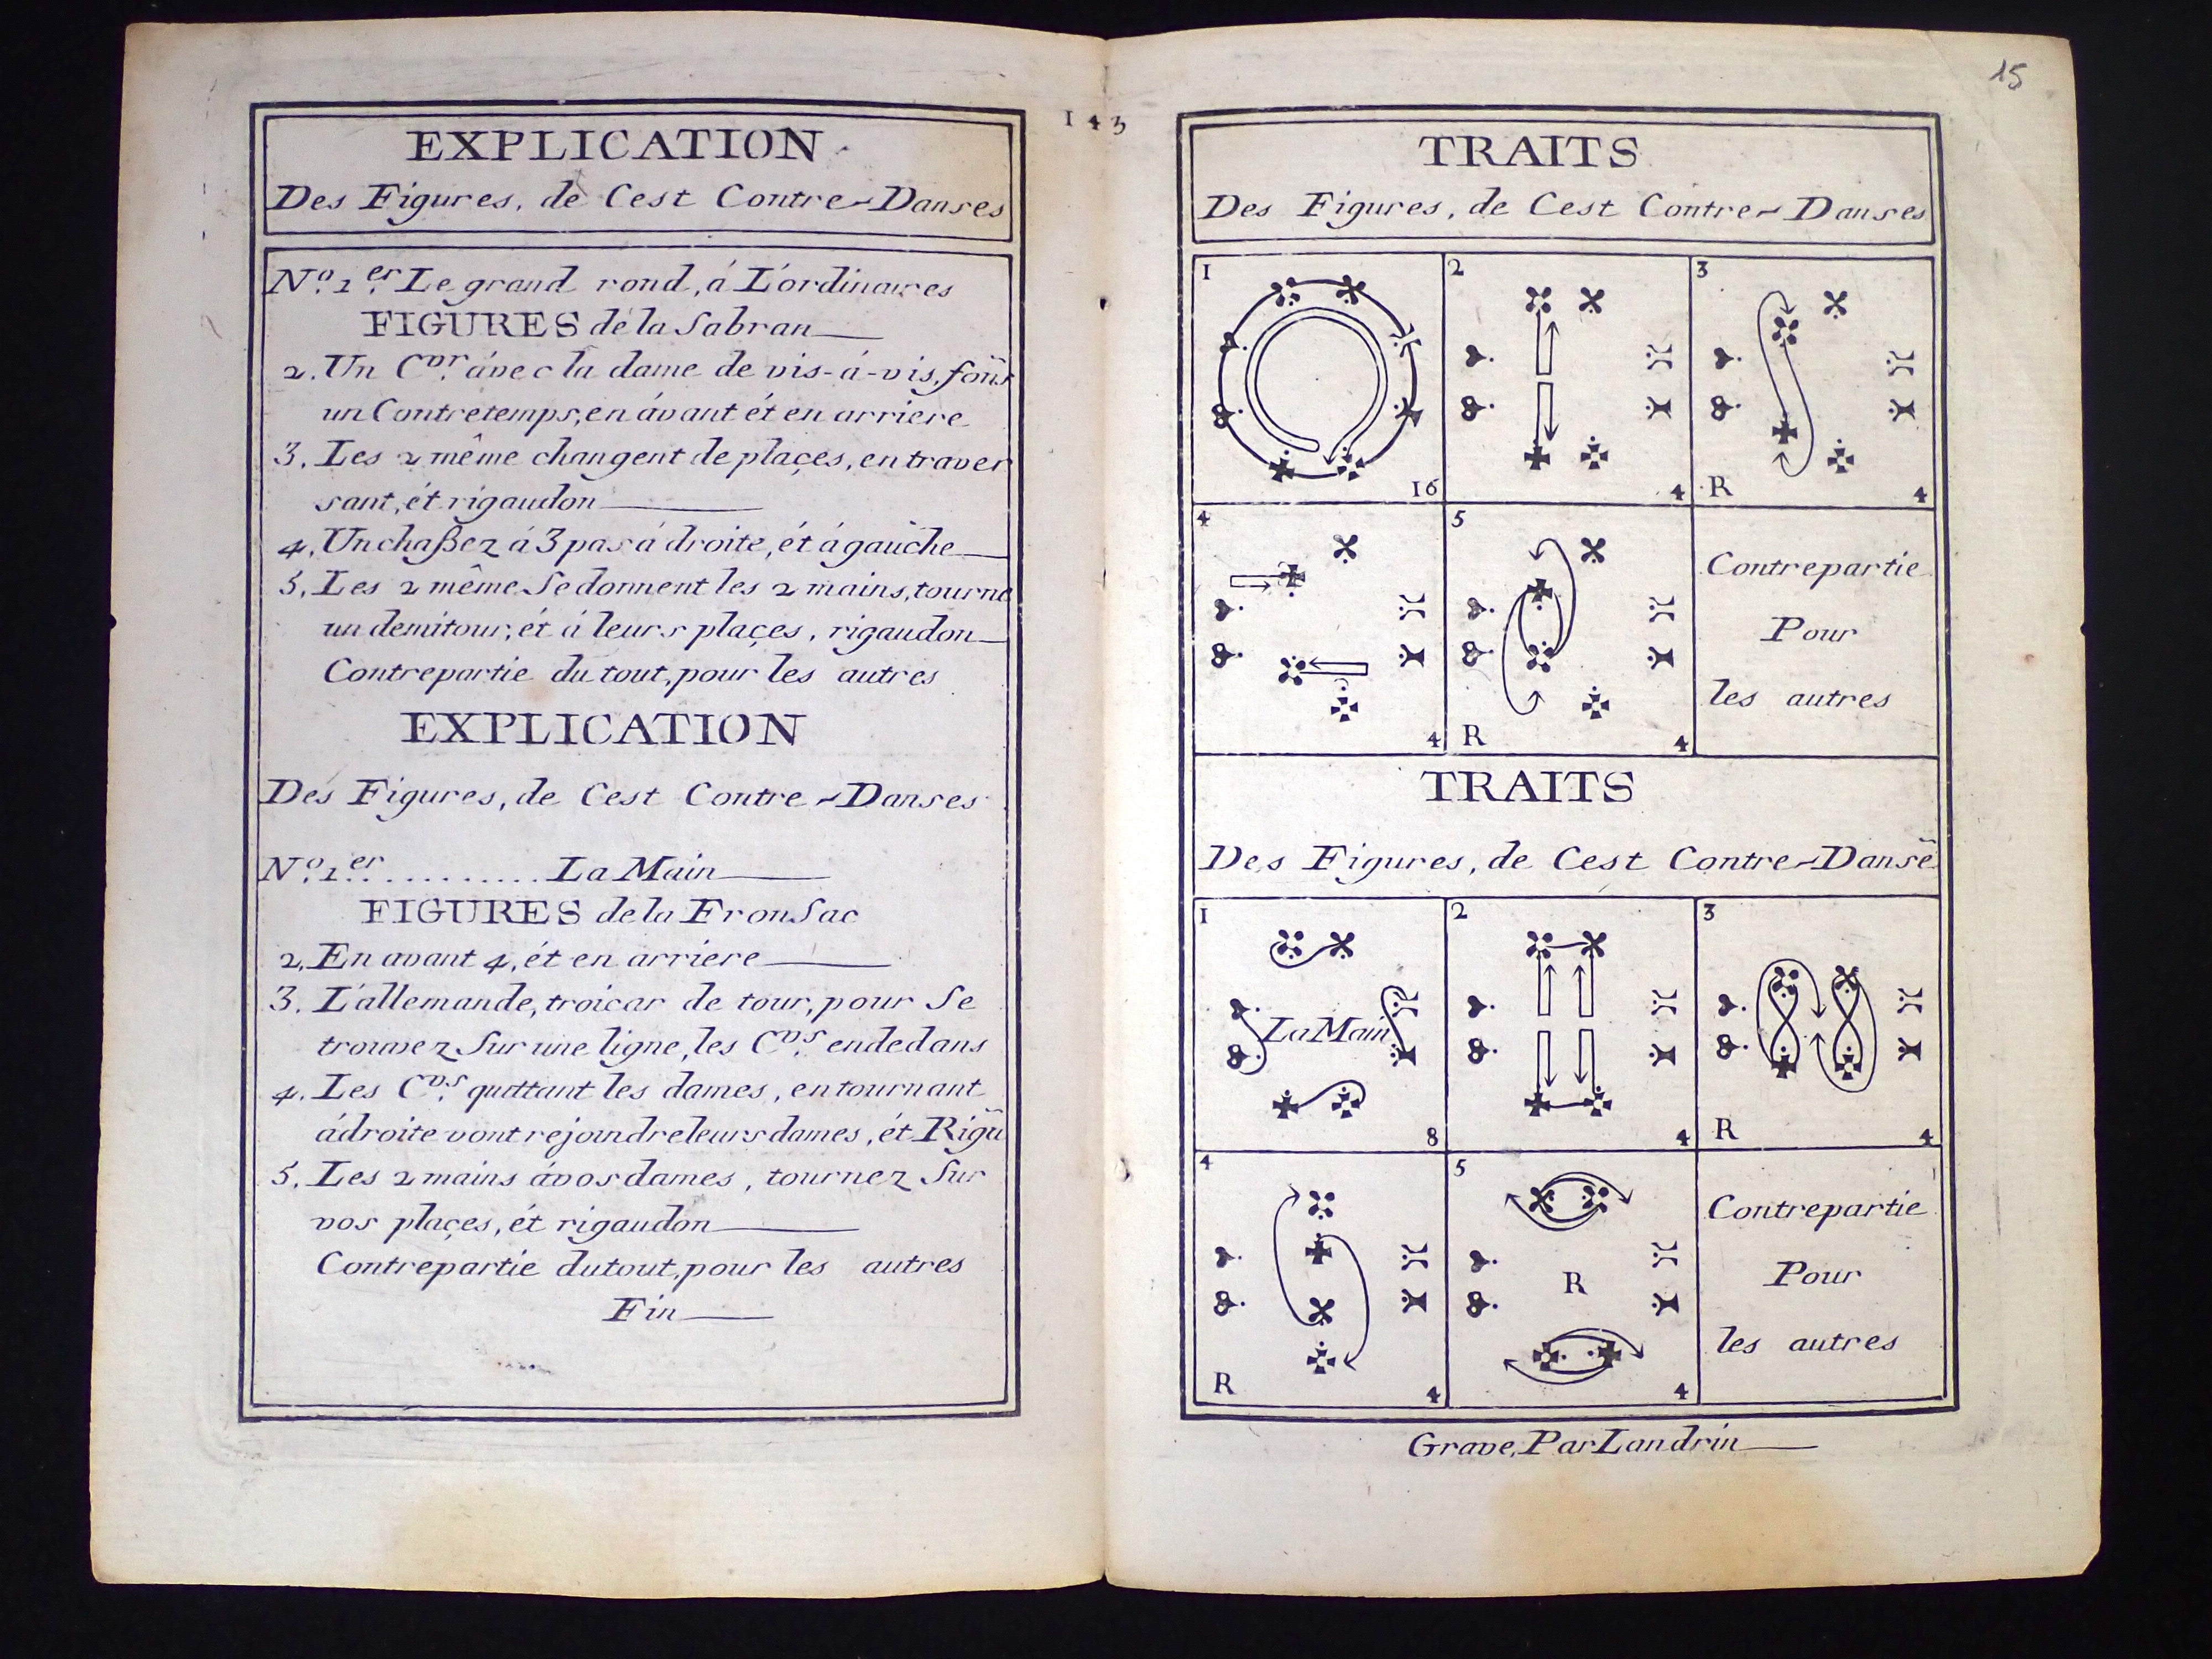 143
EXPLICATION
Des Figures, de Cest Contre-Danses
N.º 1.er Le grand rond, á L'ordinaires
FIGURES dé la Sabran
2. Un C.vr ávec la dame de vis-á-vis, fon̄s
un Contretemps, en ávant ét en arriere
3. Les 2 même changent de plaçes, en traver
sant, ét rigaudon
4. Un chaßez á 3 pas á droite, ét á gauche
5. Les 2 même Se donnent les 2 mains, tourne
un demitour, ét á leurs plaçes, rigaudon
Contrepartie du tout, pour les autres
EXPLICATION
Des Figures, de Cest Contre-Danses
N.º 1.er ........... La Main
FIGURES de la FronSac
2. En avant 4, ét en arriere
3. L'allemande, troicar de tour, pour Se
trouvez Sur une ligne, les C.vs en dedans
4. Les C.vs quittant les dames, en tournant
á droite vont rejoindre leurs dames, ét Rigū
5. Les 2 mains ávos dames, tournez Sur
vos plaçes, ét rigaudon
Contrepartie du tout, pour les autres
Fin
15
TRAITS
Des Figures, de Cest Contre-Danses
1
16
2
4
3
R
4
4
4
5
R
4
Contrepartie
Pour
les autres
TRAITS
Des Figures, de Cest Contre-Dansē
1
La Main
8
2
4
3
R
4
4
R
4
5
R
4
Contrepartie
Pour
les autres
Grave, Par Landrin